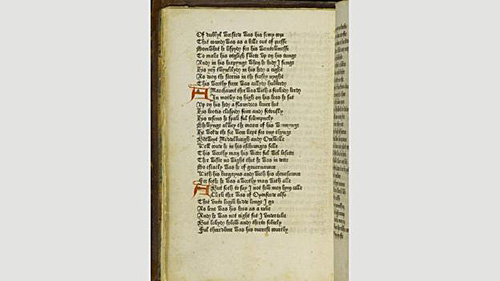 Of dubbyl worstede was his
That rounde was as a belle out of presse
Somwhat he lipsyd for his wantonnesse
To make his english swete vp on his tonge
And in his harpynge whan he had songe
His eyen twynkelyd in his hed aright
As don the sterris in the frosty nyght
This worthy frere was callyd huberd
A Marchaunt ther was with a forkid berd
In motley on high on his hors he sat
Vp on his hed a flaundres beuer hat
His botis claspid fair and fetously
His resons he spak ful solempnely
Shewynge alwey the encres of his wynnynge
He wold the see were kept for any thynge
Betwyx Middelburgh and Orewelle
Wel coude he in his eschaunges selle
This worthy man his wit ful wel besette
Ther wiste no wight that he was in dette
So estatly was he of gouernaunce
With his bargayns and with his cheuisaunce
For soth he was a worthy man with alle
But soth to say I not how men hym calle
A Clerk ther was of Oxenford also
That vnto logik hadde longe I go
As lene was his hors as a rake
And he was not right fat I vndertake
But lokyd holow and therto soberly
Ful thredbare was his ouerest courtby